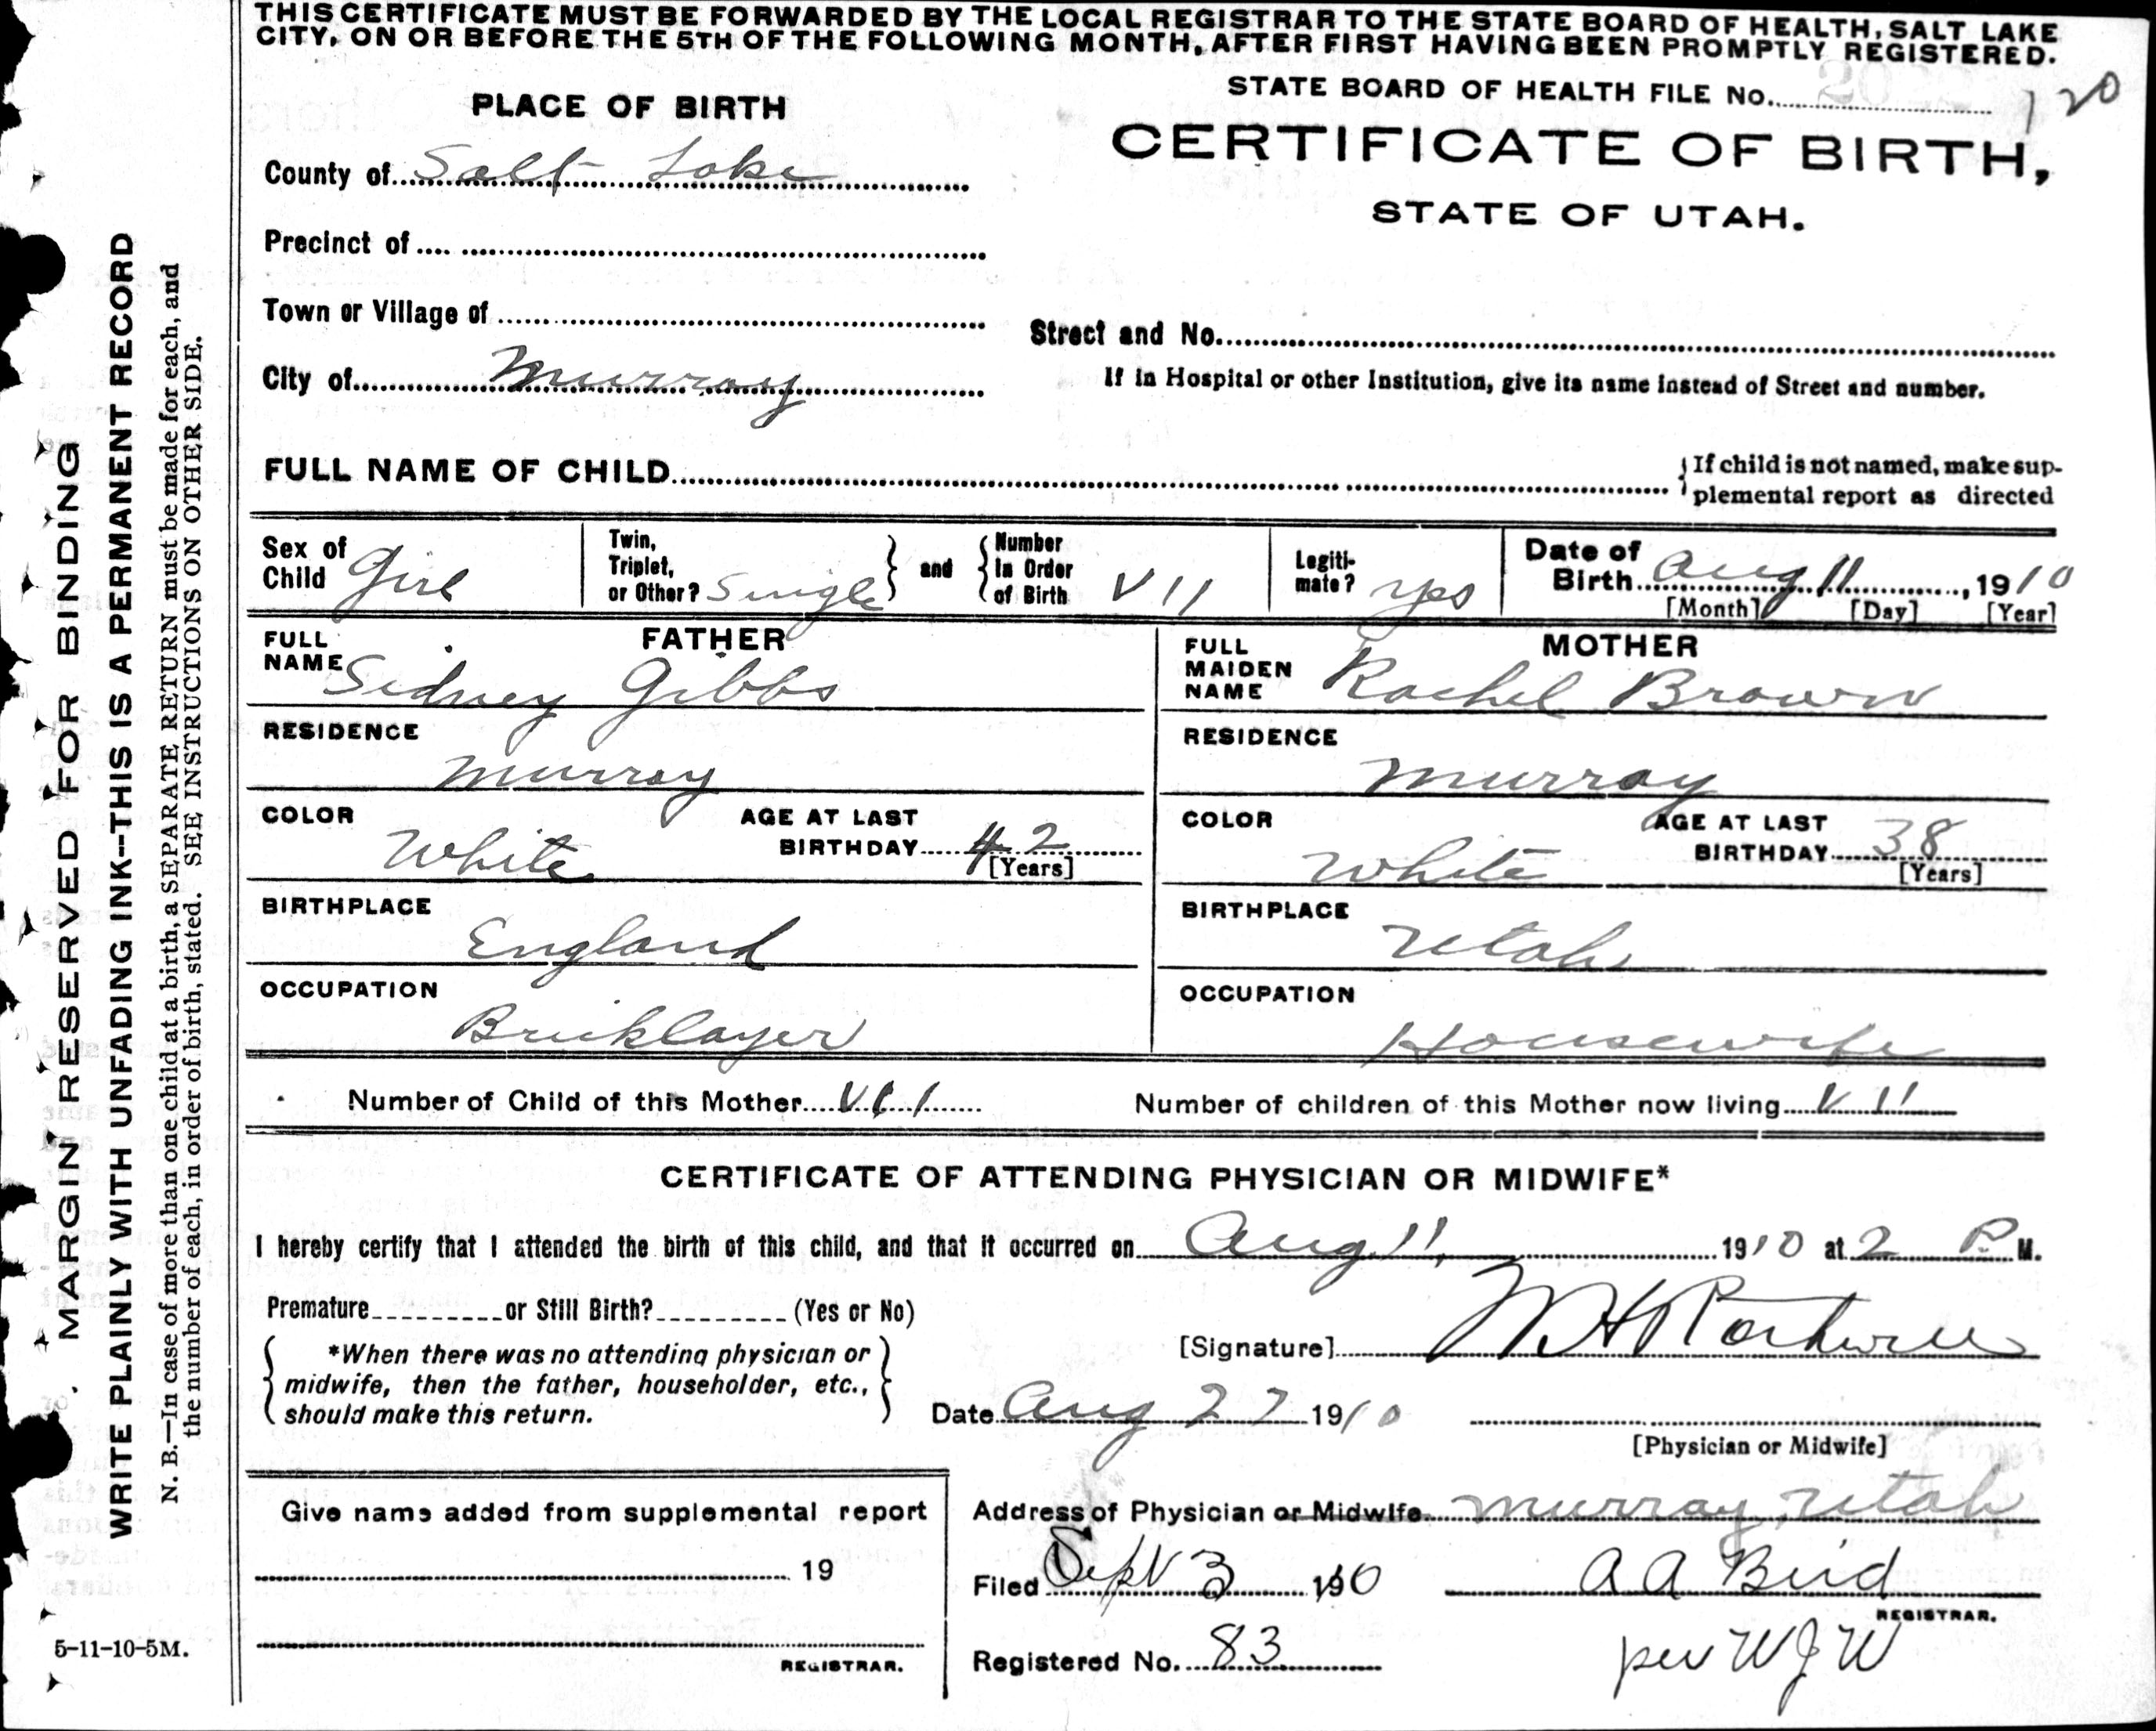 THIS CERTIFICATE MUST BE FORWARDED BY THE LOCAL REGISTRAR TO THE STATE BOARD OF HEALTH, SALT LAKE
CITY, ON OR BEFORE THE 5TH OF THE FOLLOWING MONTH, AFTER FIRST HAVING BEEN PROMPTLY REGISTERED.
STATE BOARD OF HEALTH FILE No. 120
PLACE OF BIRTH
CERTIFICATE OF BIRTH,
STATE OF UTAH.
County of Salt Lake
Precinct of
Town or Village of
Street and No.
City of Murray
If in Hospital or other Institution, give its name instead of Street and number.
FULL NAME OF CHILD
If child is not named, make sup-
plemental report as directed
Sex of Child Girl
Twin, Triplet, or Other? Single and Number In Order of Birth VII
Legiti-mate? yes
Date of Birth Aug 11, 1910
[Month] [Day] [Year]
FATHER
FULL NAME Sidney Gibbs
MOTHER
FULL MAIDEN NAME Rachel Brown
RESIDENCE
Murray
RESIDENCE
Murray
COLOR White
AGE AT LAST BIRTHDAY 42 [Years]
COLOR White
AGE AT LAST BIRTHDAY 38 [Years]
BIRTHPLACE
England
BIRTHPLACE
Utah
OCCUPATION
Bricklayer
OCCUPATION
Housewife
Number of Child of this Mother VII
Number of children of this Mother now living VII
CERTIFICATE OF ATTENDING PHYSICIAN OR MIDWIFE*
I hereby certify that I attended the birth of this child, and that it occurred on Aug. 11, 1910 at 2 P.M.
Premature or Still Birth? (Yes or No)
*When there was no attending physician or
midwife, then the father, householder, etc.,
should make this return.
[Signature]
Date Aug 27 1910
[Physician or Midwife]
Give name added from supplemental report
19
REGISTRAR.
Address of Physician or Midwife Murray, Utah
Filed Sept 3 1910
A A Bird
REGISTRAR.
Registered No. 83
per W J W
MARGIN RESERVED FOR BINDING
WRITE PLAINLY WITH UNFADING INK--THIS IS A PERMANENT RECORD
N. B.—In case of more than one child at a birth, a SEPARATE RETURN must be made for each, and
the number of each, in order of birth, stated. SEE INSTRUCTIONS ON OTHER SIDE.
5-11-10-5M.